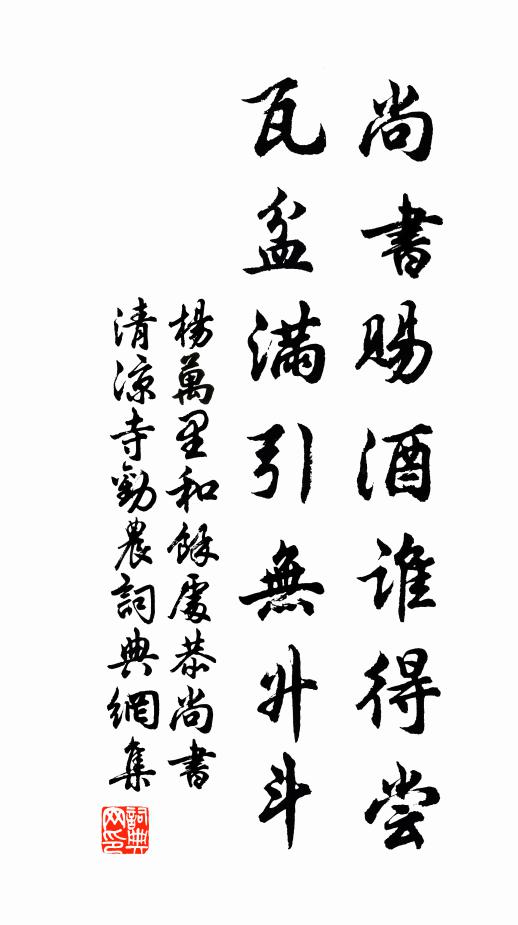 尚書賜酒誰得嘗
瓦盆滿引無升斗
楊萬里和餘處恭尚書
清涼寺勸農詞典網集
詞典網印